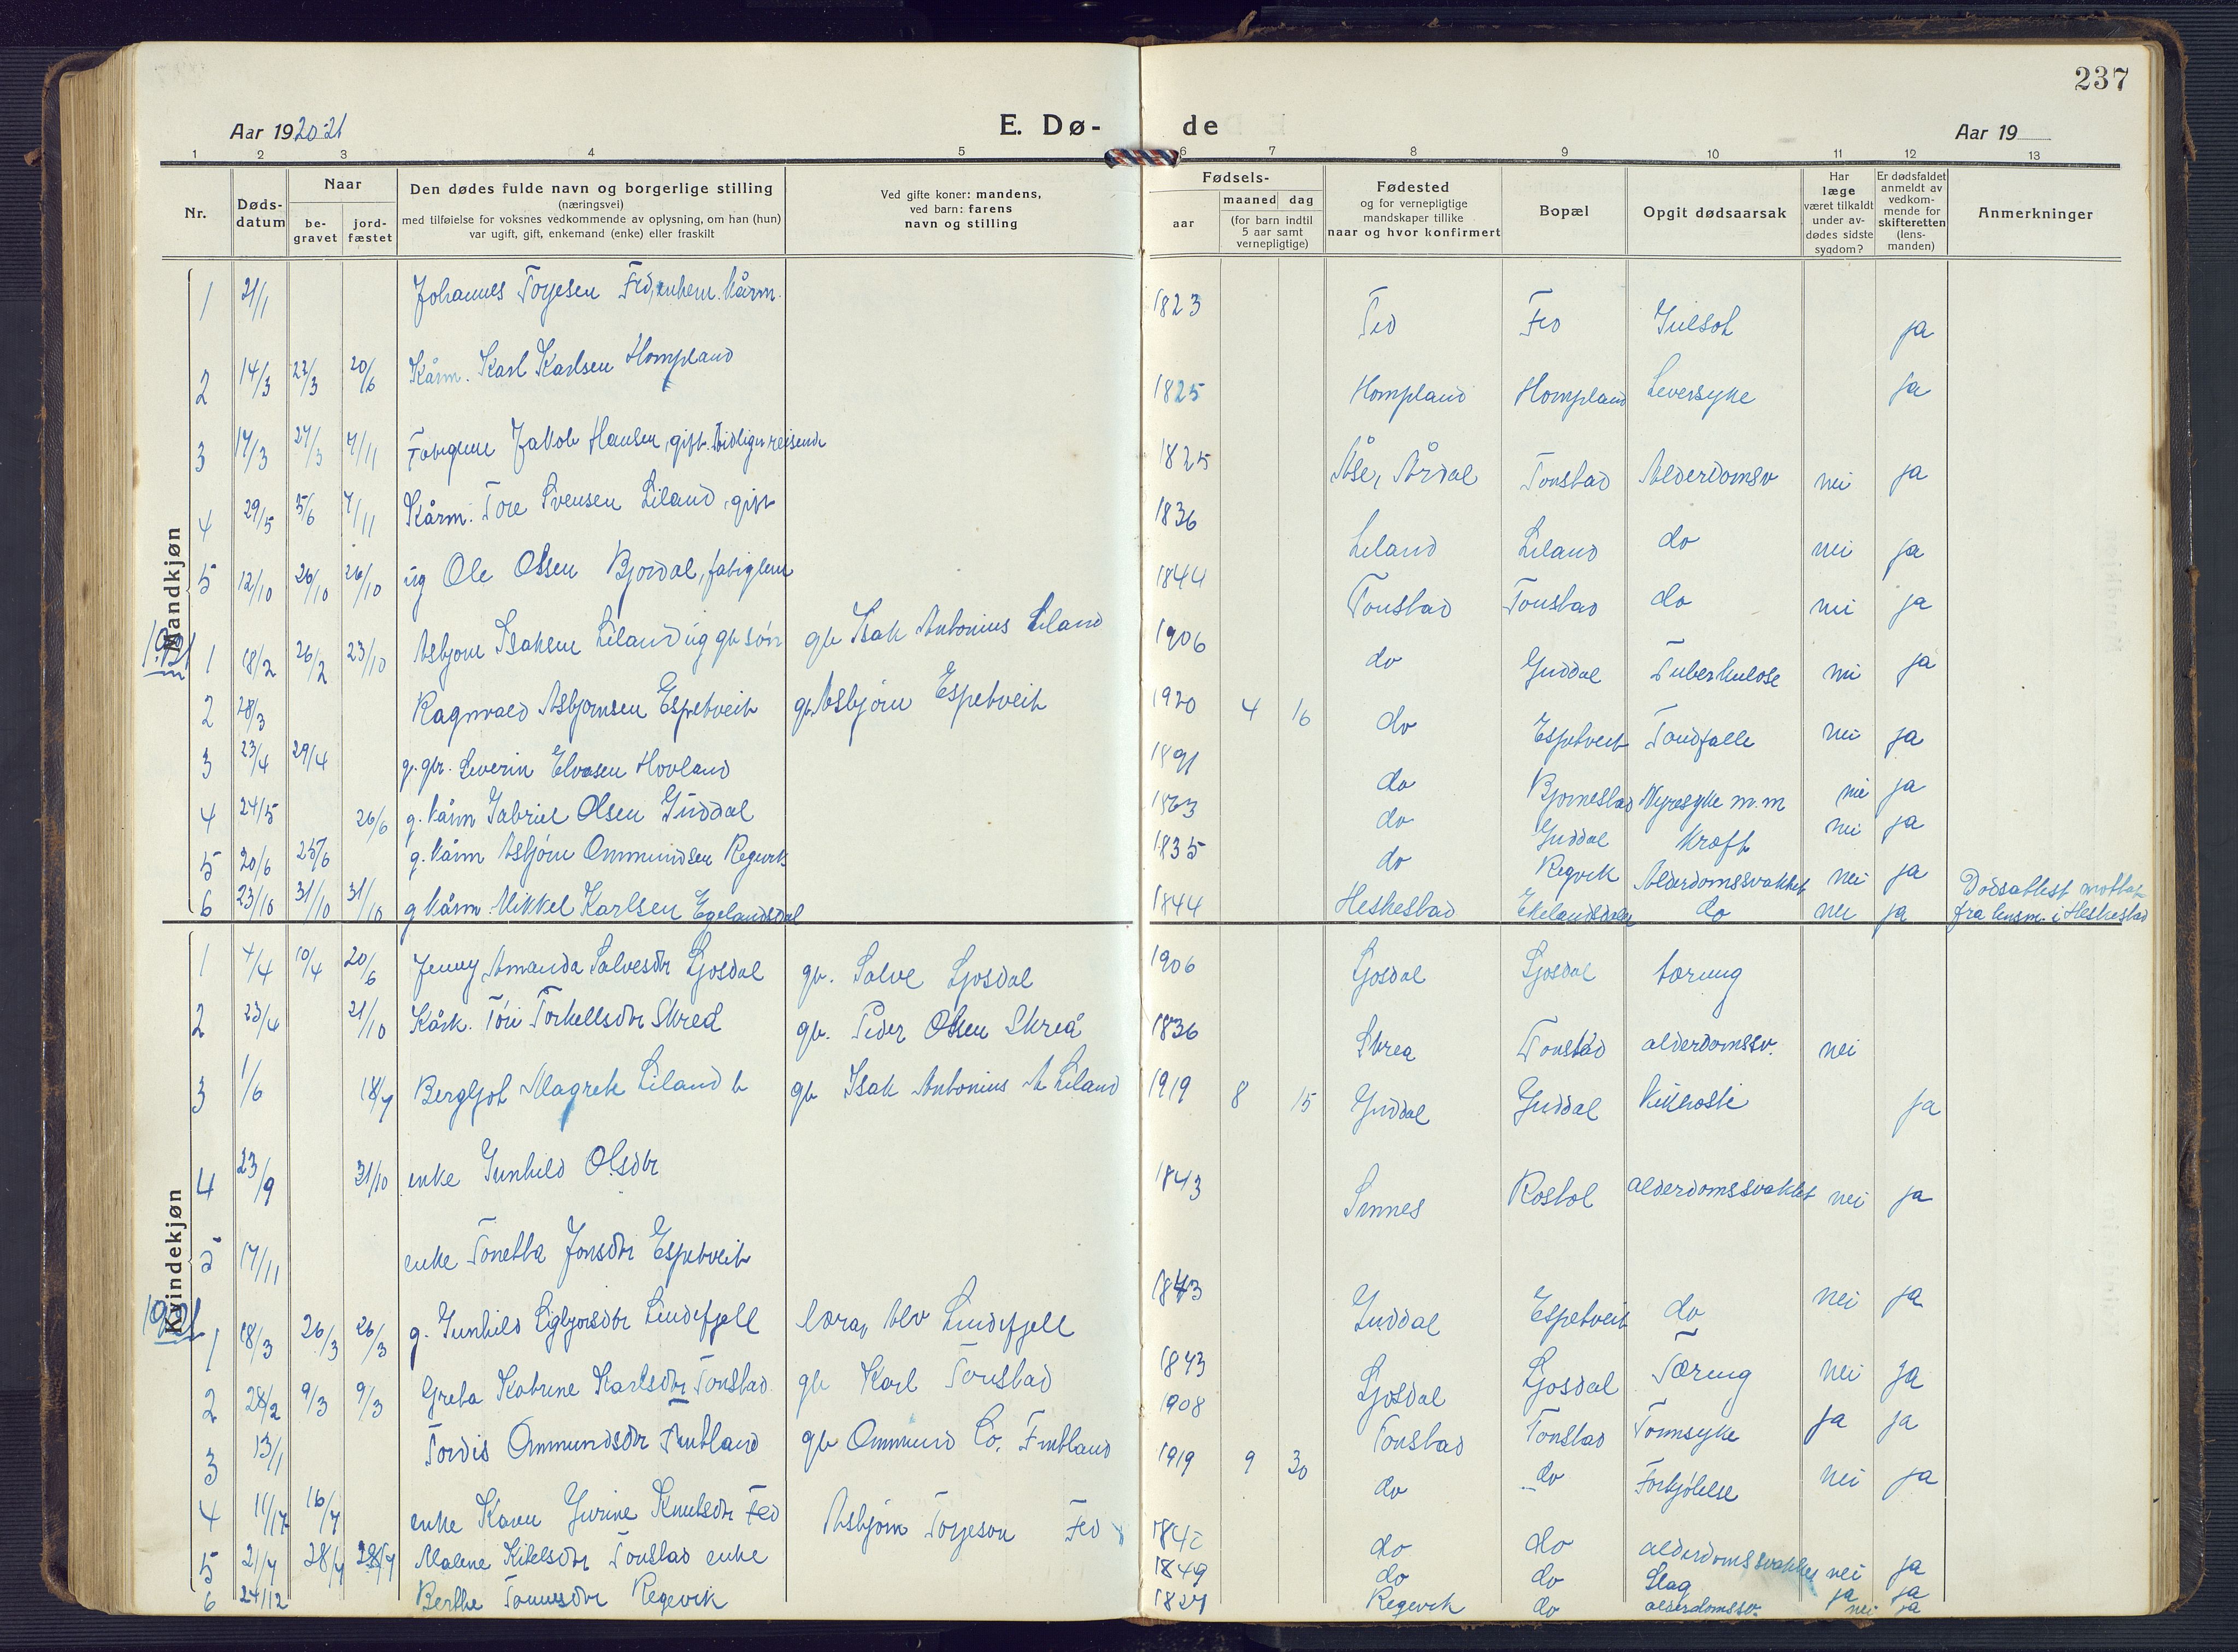 237
Aar 1920-21
E. Dø-
de
Aar 19
1 2 3 4 5 6 7 8 9 10 11 12 13
Nr.
Døds-
datum
Naar
be-
gravet
jord-
fæstet
Den dødes fulde navn og borgerlige stilling
(næringsvei)
med tilføielse for voksnes vedkommende av oplysning, om han (hun)
var ugift, gift, enkemand (enke) eller fraskilt
Ved gifte koner: mandens,
ved barn: farens
navn og stilling
Fødsels-
aar
maaned dag
(for barn indtil
5 aar samt
vernepligtige)
Fødested
og for vernepligtige
mandskaper tillike
naar og hvor konfirmert
Bopæl
Opgit dødsaarsak
Har
læge
været tilkaldt
under av-
dødes sidste
sygdom?
Er dødsfaldet
anmeldt av
vedkom-
mende for
skifteretten
(lens-
manden)
Anmerkninger
Mandkjøn
1 21/1 Johannes Torjesen Fed, enkem. kårm. 1823 Fed Fed Gulsot ja
2 14/3 22/3 20/6 Kårm. Karl Karlsen Hompland 1825 Hompland Hompland Leversyke ja
3 17/3 27/3 7/11 Fatiglem Jakob Hansen, gift. Tidliger reisende 1825 Åse, Årdal Tonstad Alderdomsv nei ja
4 29/5 5/6 7/11 Kårm. Tore Svensen Liland, gift 1836 Liland Liland do nei ja
5 12/10 26/10 26/10 ug Ole Olsen Bjordal, fatiglem 1844 Tonstad Tonstad do nei ja
1921
1 18/2 26/2 23/10 Asbjorn Isaksen Liland ug gb søn gb Isak Antonius Liland 1906 do Guddal Tuberkulose nei ja
2 28/3 Ragnvald Asbjornsen Espetveit gb Asbjørn Espetveit 1920 4 16 do Espetveit Tandfelle nei ja
3 23/4 29/4 g. gbr. Severin Elvasen Hovland 1891 do Bjornestad Nyresyke m.m nei ja
4 24/5 26/6 g. kårm Gabriel Olsen Guddal 1863 do Guddal Kræft nei ja
5 20/6 25/6 g. kårm Asbjørn Ommundsen Regevik 1835 do Regvik Alderdomssvakhet nei ja
6 23/10 31/10 31/10 g kårm. Mikkel Karlsen Egelandsdal 1844 Heskestad Ekelandsdalen do nei ja Dødsattest mottat
fra lensm. i Heskestad
Kvindekjøn
1 4/4 10/4 20/6 Jenny Amanda Salvesdtr Ljosdal gb. Salve Ljosdal 1906 Ljosdal Ljosdal tæring
2 23/4 21/10 Kårk. Tori Torkellsdtr Skreå gb. Peder Olsen Skreå 1836 Skrea Tonstad alderdomssv. nei
3 1/6 18/7 Bergljot Magrete Liland b gb Isak Antonius A Liland 1919 8 15 Guddal Guddal Kikhoste ja
4 23/9 31/10 enke Gunhild Olsdtr 1843 Sinnes Rostøl alderdomssvakhet nei ja
5 17/11 enke Tonetta Jonsdtr Espetveit 1843 Guddal Espetveit do nei ja
1921
1 18/3 26/3 26/3 g. Gunhild Sigbjornsdtr Lindefjell Alv Lindefjell 1843 Ljosdal Ljosdal Tæring nei ja
2 28/2 9/3 9/3 Greta Katrine Karlsdtr Tonstad gb Karl Tonstad 1908 Tonstad Tonstad Tarmsyke ja ja
3 13/1 Tordis Ommundsdtr Fintland gb Ommund Fintland 1919 9 30 do do Forkjølelse nei ja
4 16/7 enke Karen Gurine Knutsdtr Fed Asbjørn Torjeson Fed do do alderdomssvakhet nei ja
5 21/7 28/7 28/7 Malene Kitelsdtr Tonstad enke 1849 do do Slag ja ja
6 24/12 Berthe Tomnesdtr Regevik 1827 Regevik do alderdomssv. nei ja